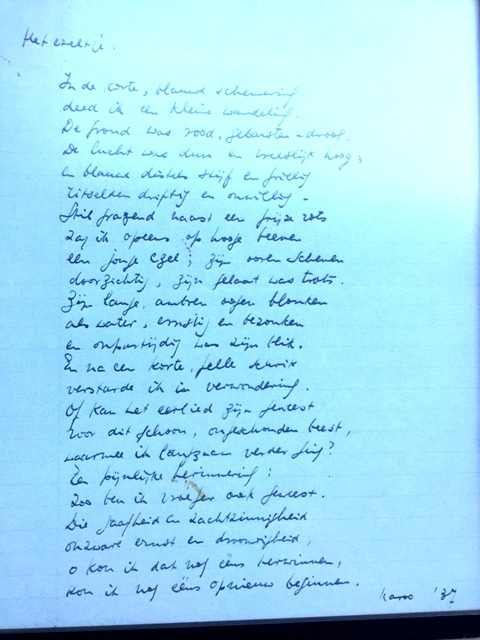 Het ezeltje.
In de korte, blauwe schemering
deed ik een kleine wandeling.
De grond was rood, gebarsten-droog.
De lucht was dun en vreeslijk hoog;
en blauwe distels stijf en grillig
ritselden driftig en onwillig.
Stil grazend naast een grijze rots
zag ik opeens op hooge beenen
een jonge ezel; zijn ooren schenen
doorzichtig, zijn gelaat was trots.
Zijn lange, ambren oogen blonken
als water, ernstig en bezonken
en onpartijdig was zijn blik.
En na een korte, felle schrik
verstarde ik in verwondering.
Of kan het eerbied zijn geweest
voor dit schoon, ongeschonden beest,
waarmee ik langzaam verder ging?
Een pijnlijke herinnering:
Zoo ben ik vroeger ook geweest.
Die gaafheid en zachtzinnigheid
onzware ernst en droomrigheid,
o kon ik dat nog ééns herwinnen,
kon ik nog ééns opnieuw beginnen.
Karoo '37